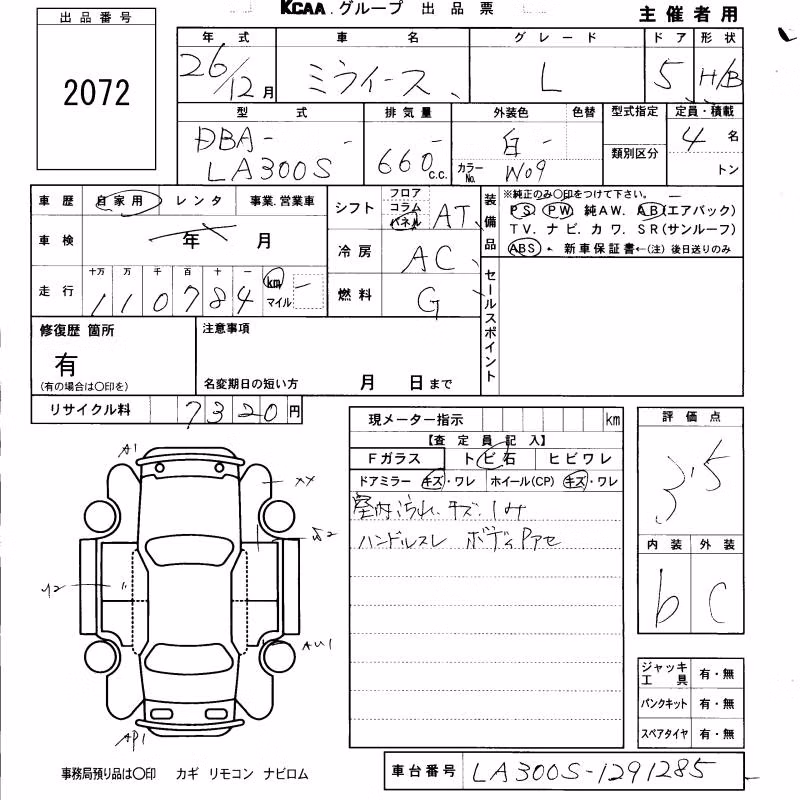 KCAA.グループ 出品票
主催者用
出品番号
2072
年式 車名 グレード ドア 形状
26/12月 ミライース L 5 H/B
型式 排気量 外装色 色替 型式指定 定員・積載
DBA-
LA300S 660 c.c. 白 カラーNo. W09 類別区分 4名
トン
車歴 自家用 レンタ 事業.営業車
車検 年 月
走行 十万 万 千 百 十 一
110784 km マイル
シフト フロア コラム パネル AT
冷房 AC
燃料 G
装備品
※純正のみ〇印をつけて下さい。
PS PW 純AW. AB(エアバック)
TV. ナビ. カワ. SR(サンルーフ)
ABS ・ 新車保証書←(注)後日送りのみ
セールスポイント
修復歴 箇所
有
(有の場合は〇印を)
注意事項
名変期日の短い方 月 日まで
リサイクル料 7320円
現メーター指示 km
【査定員記入】
Fガラス トビ石 ヒビワレ
ドアミラー キズ・ワレ ホイール(CP) キズ・ワレ
室内汚れ、キズ、シミ
ハンドルスレ ボディUPアセ
評価点
3.5
内装 外装
b C
A1
XX
A2
AU1
AP1
ジャッキ工具 有・無
パンクキット 有・無
スペアタイヤ 有・無
事務局預り品は〇印 カギ リモコン ナビロム
車台番号 LA300S-1291285